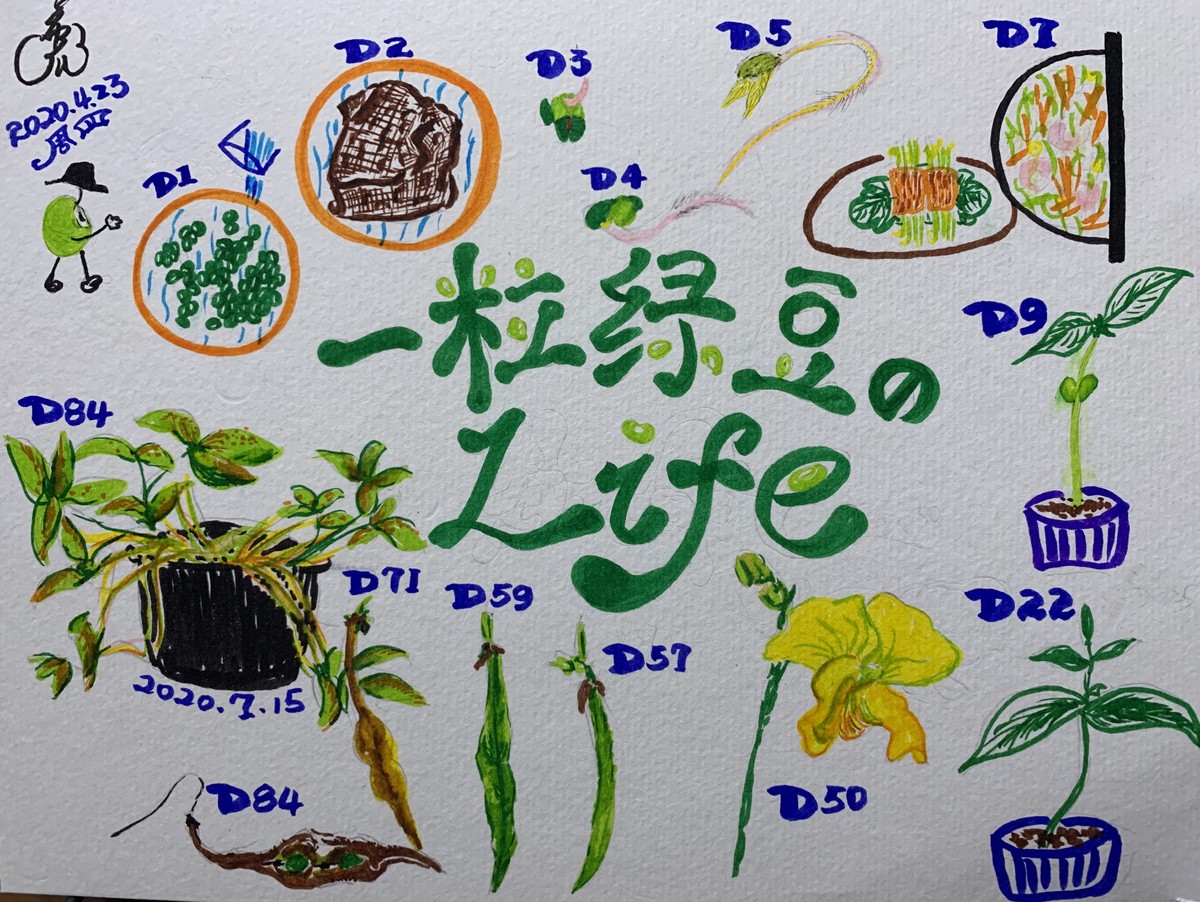 2020.4.23
D1
D2
D3
D4
D5
D7
一粒绿豆の
Life
D9
D22
D50
D57
D59
D71
D84
2020.7.15
D84